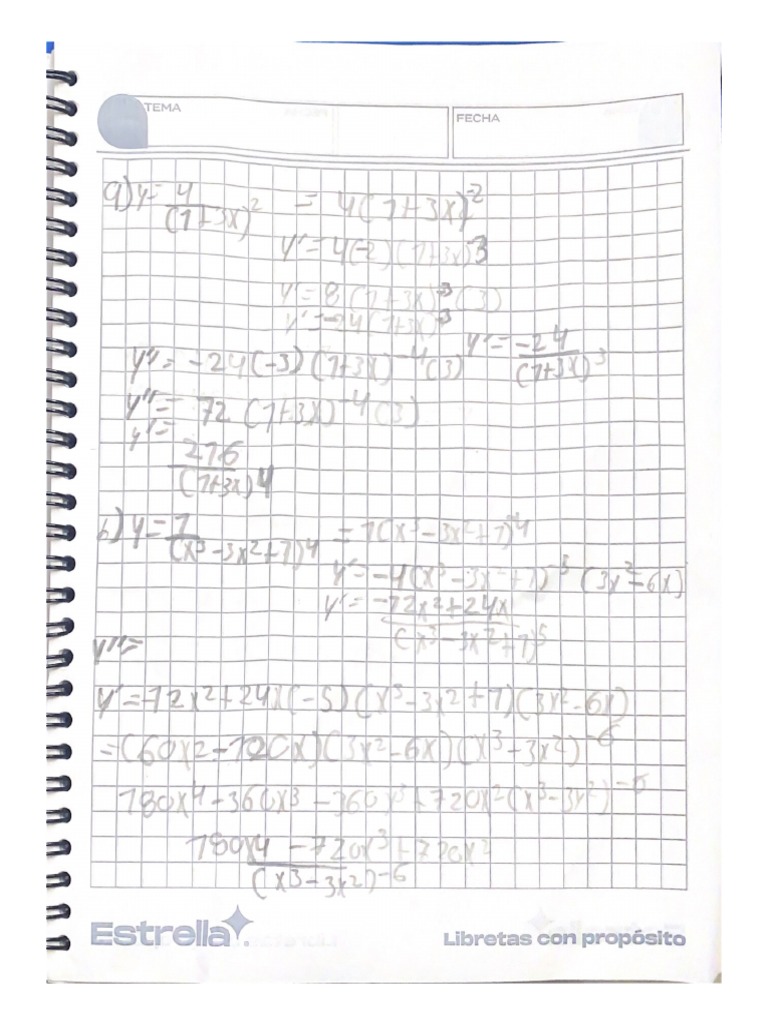 TEMA
FECHA
a) y = 4/(1+3x)^2 = 4(1+3x)^-2
y' = 4(-2)(1+3x)^-3
y' = 8(1+3x)^-3 (3)
y' = -24(1+3x)^-3
y' = -24/(1+3x)^3
y'' = -24(-3)(1+3x)^-4 (3)
y'' = 72(1+3x)^-4 (3)
y'' = 216/(1+3x)4
b) y = 1/(x^3-3x^2+1)^4 = 1(x^3-3x^2+1)^-4
y' = -4(x^3-3x^2+1)^-5 (3x^2-6x)
y' = -12x^2+24x/(x^3-3x^2+1)^5
y''=
y' = -12x^2+24x(-5)(x^3-3x^2+1)(3x^2-6x)
=(60x2-120x)(3x^2-6x)(x^3-3x^2)^-6
180x^4-360x^3-360x^3+720x^2(x^3-3x^2)^-6
180x4-720x^3+720x^2/(x^3-3x^2)^-6
Estrella.
Libretas con propósito